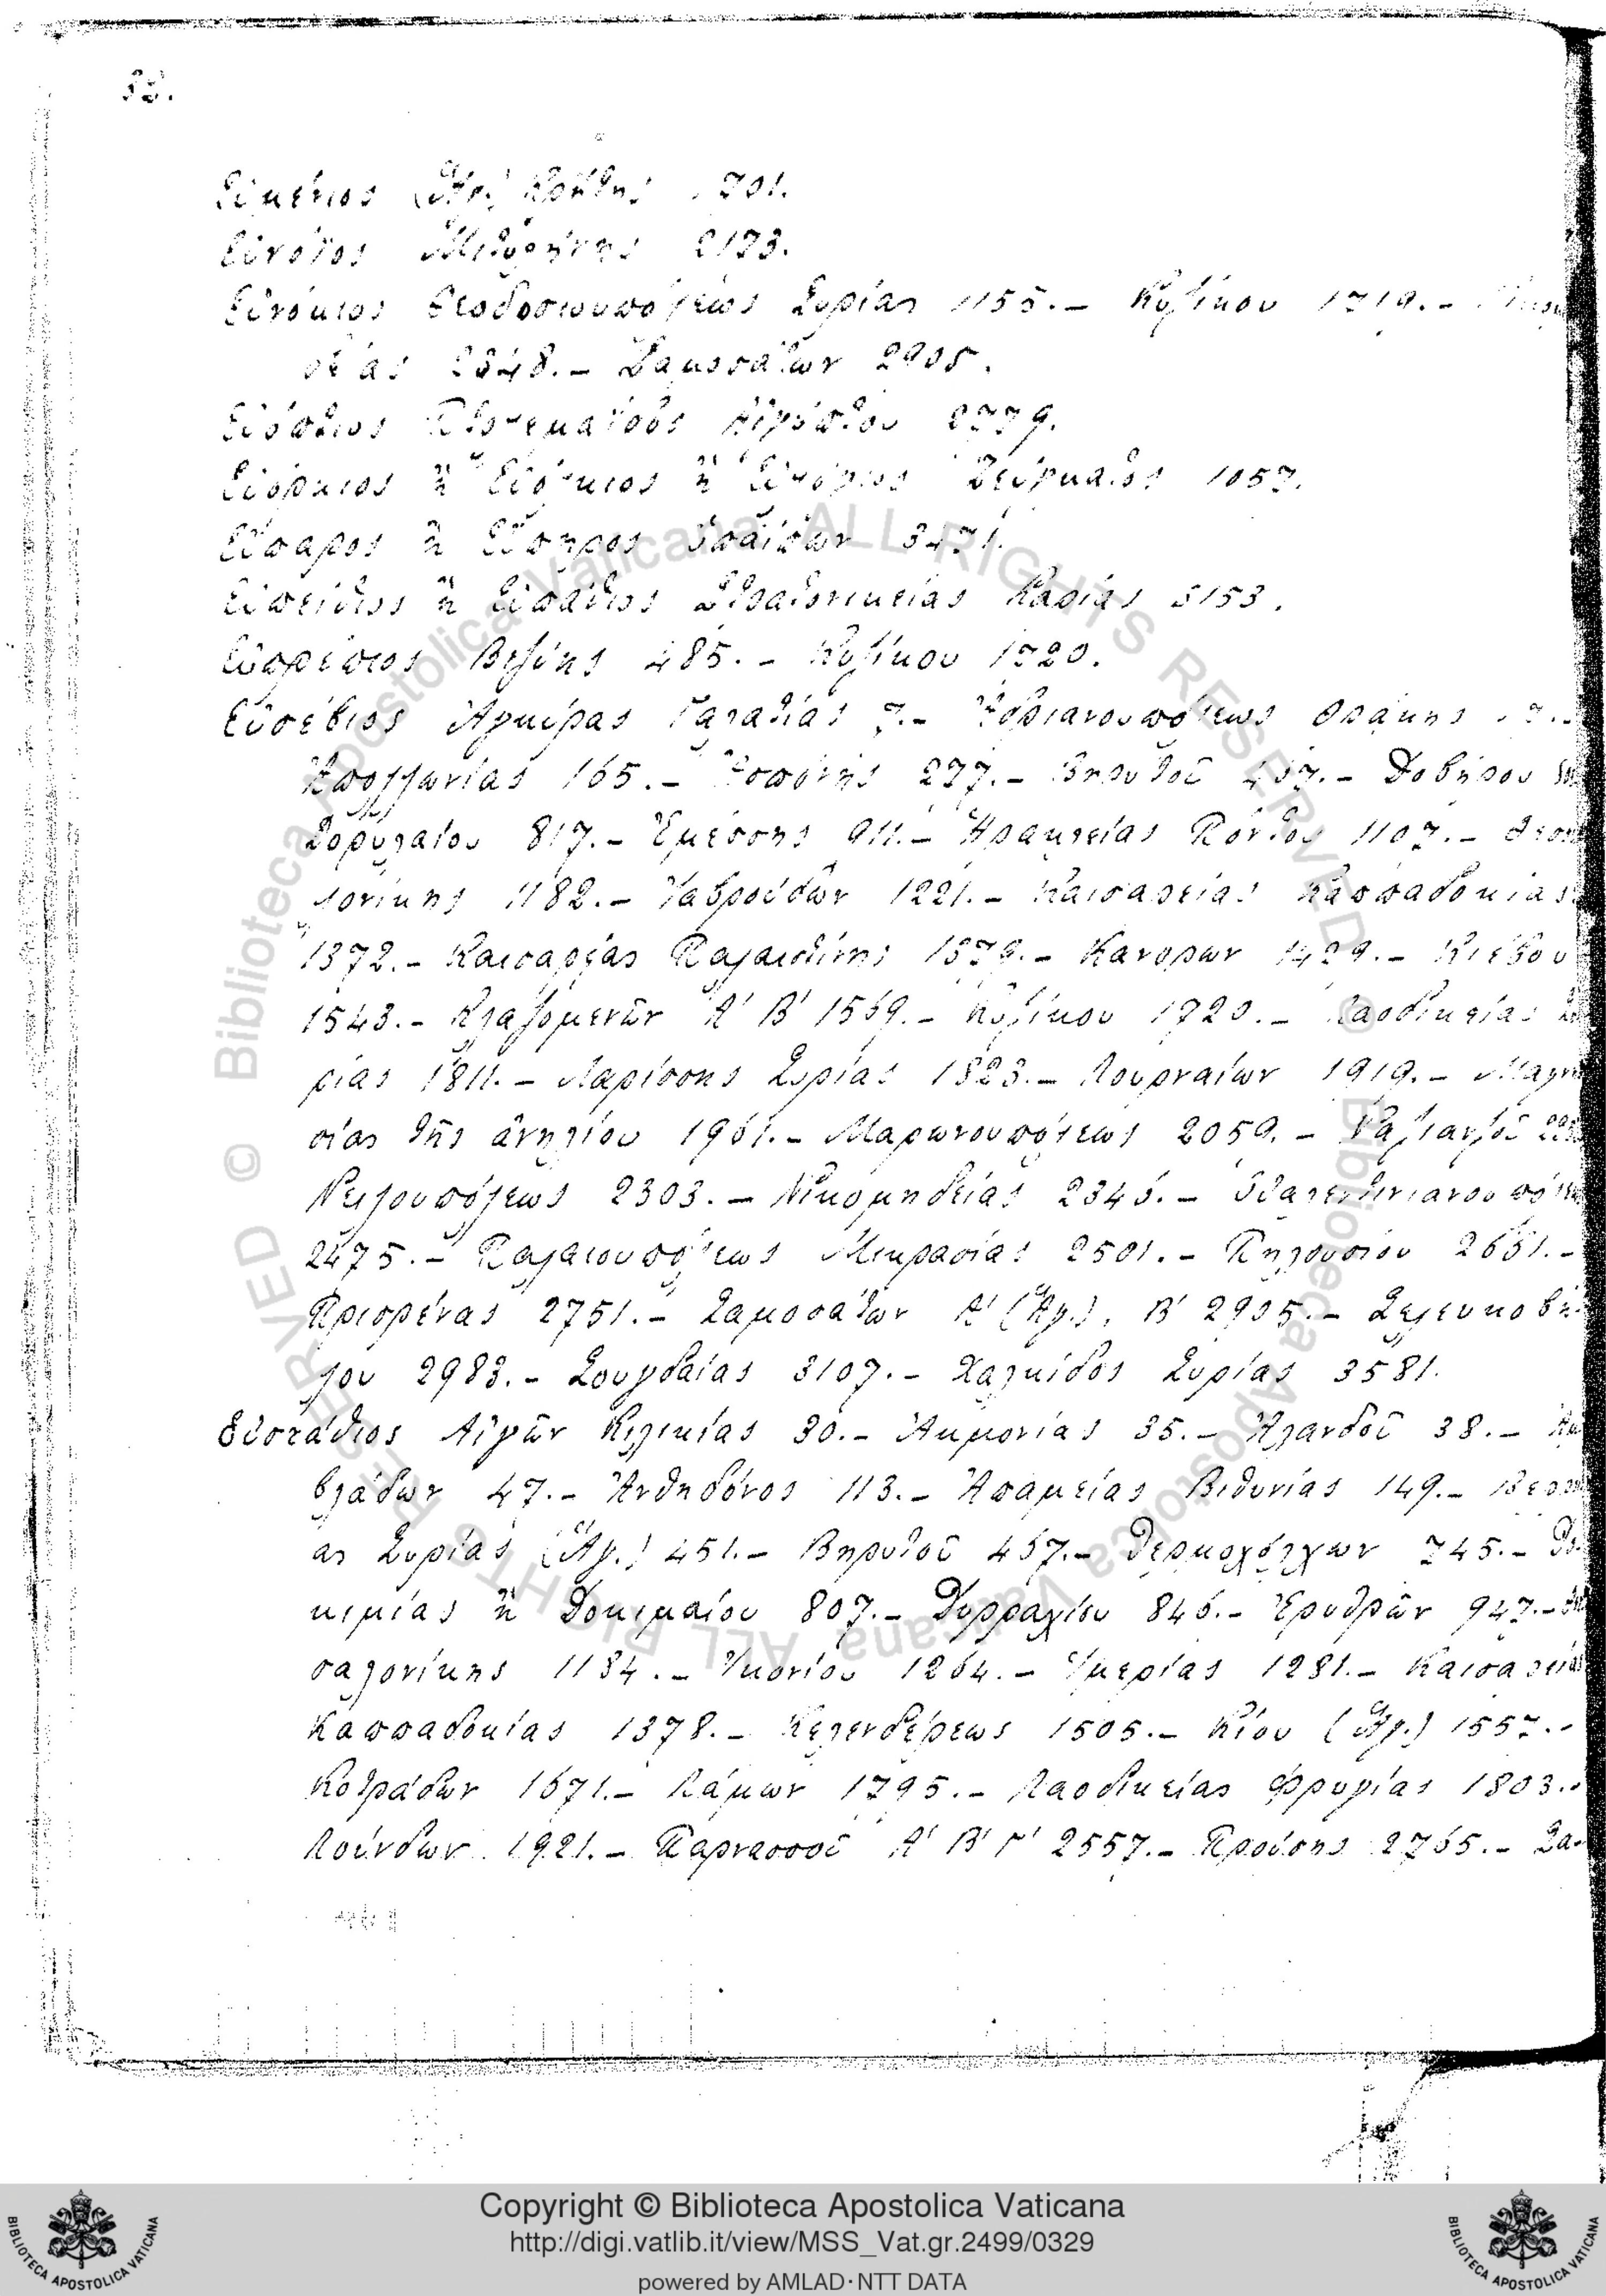 Εὐμένιος (Ἅγ.) Κρήτης 1701.
Εὔνοιος Μιτυλήνης 2173.
Εὐνόμιος Θεοδοσιουπόλεως Συρίας 1155.- Κυζίκου 1719.-
δείας 2348.- Σαμοσάτων 2905.
Εὐόπτιος Πτολεμαΐδος Αἰγύπτου 2779.
Ζεύγματος 1057.
Εὔπαρος ἢ Εὔπηρος Ὑπαίπων 3471.
Εὐπείθιος ἢ Εὐπάθιος Στρατονικείας Καρίας 3153.
Εὐπρέπιος Βιζύης 485.- Κυζίκου 1720.
Εὐσέβιος Ἀγκύρας Γαλατίας 7.- Ἀδριανουπόλεως Θρᾴκης
Ἀπολλωνίας 165.- 277.- Βηρυτοῦ 467.- Δοβήρου
Δορυλαίου 817.- Ἐμέσσης 911.- Ἡρακλείας Πόντου 1107.- Θεσσα
λονίκης 1182.- Ἰαβρούδων 1221.- Καισαρείας Καππαδοκίας
1372.- Καισαρείας Παλαιστίνης 1379.- Κανορων 1429.- Κιέβου
1543.- Κλαζομενῶν Α' Β' 1569.- Κυζίκου 1720.- Λαοδικείας Συ
ρίας 1811.- Λαρίσσης Συρίας 1823.- Λουρναίων 1919.- Μαγνη
σίας τῆς ἀνηλίου 1961.- Μαρωνουπόλεως 2059.- Ναζιανζοῦ
Νειλουπόλεως 2303.- Νικομηδείας 2346.- Οὐαλεντινιανουπόλεως
2475.- Παλαιουπόλεως Μικρασίας 2501.- Πηλουσίου 2651.-
Πρισρένας 2751.- Σαμοσάτων Α' (Ἅγ.), Β' 2905.- Σελευκοβή
λου 2983.- Σουγδαίας 3107.- Χαλκίδος Συρίας 3581.
Εὐστάθιος Αἰγῶν Κιλικίας 30.- Ἀκμονίας 35.- Ἀλανδοῦ 38.- Ἀμ
βλάδων 47.- Ἀνθηδόνος 113.- Ἀπαμείας Βιθυνίας 149.- Βεροί
ας Συρίας (Ἅγ.) 451.- Βηρυτοῦ 467.- Θερμοχόλχων 745.- Δο
κιμίας ἢ Δοκιμαίου 807.- Δυρραχίου 846.- Ἐρυθρῶν 947.-
σαλονίκης 1184.- Ἰκονίου 1264.- Ἱμερίας 1281.- Καισαρείας
Καππαδοκίας 1378.- Κελενδέρεως 1505.- Κίου (Ἅγ.) 1557.-
Κοτράδων 1671.- Λάμων 1795.- Λαοδικείας Φρυγίας 1803.-
Λούνδων 1921.- Παρνασσοῦ Α' Β' Γ' 2557.- Προύσης 2765.- Σα-
© Biblioteca Apostolica Vaticana ALL RIGHTS RESERVED
Copyright © Biblioteca Apostolica Vaticana
http://digi.vatlib.it/view/MSS_Vat.gr.2499/0329
powered by AMLAD·NTT DATA
BIBLIOTECA APOSTOLICA VATICANA
BIBLIOTECA APOSTOLICA VATICANA